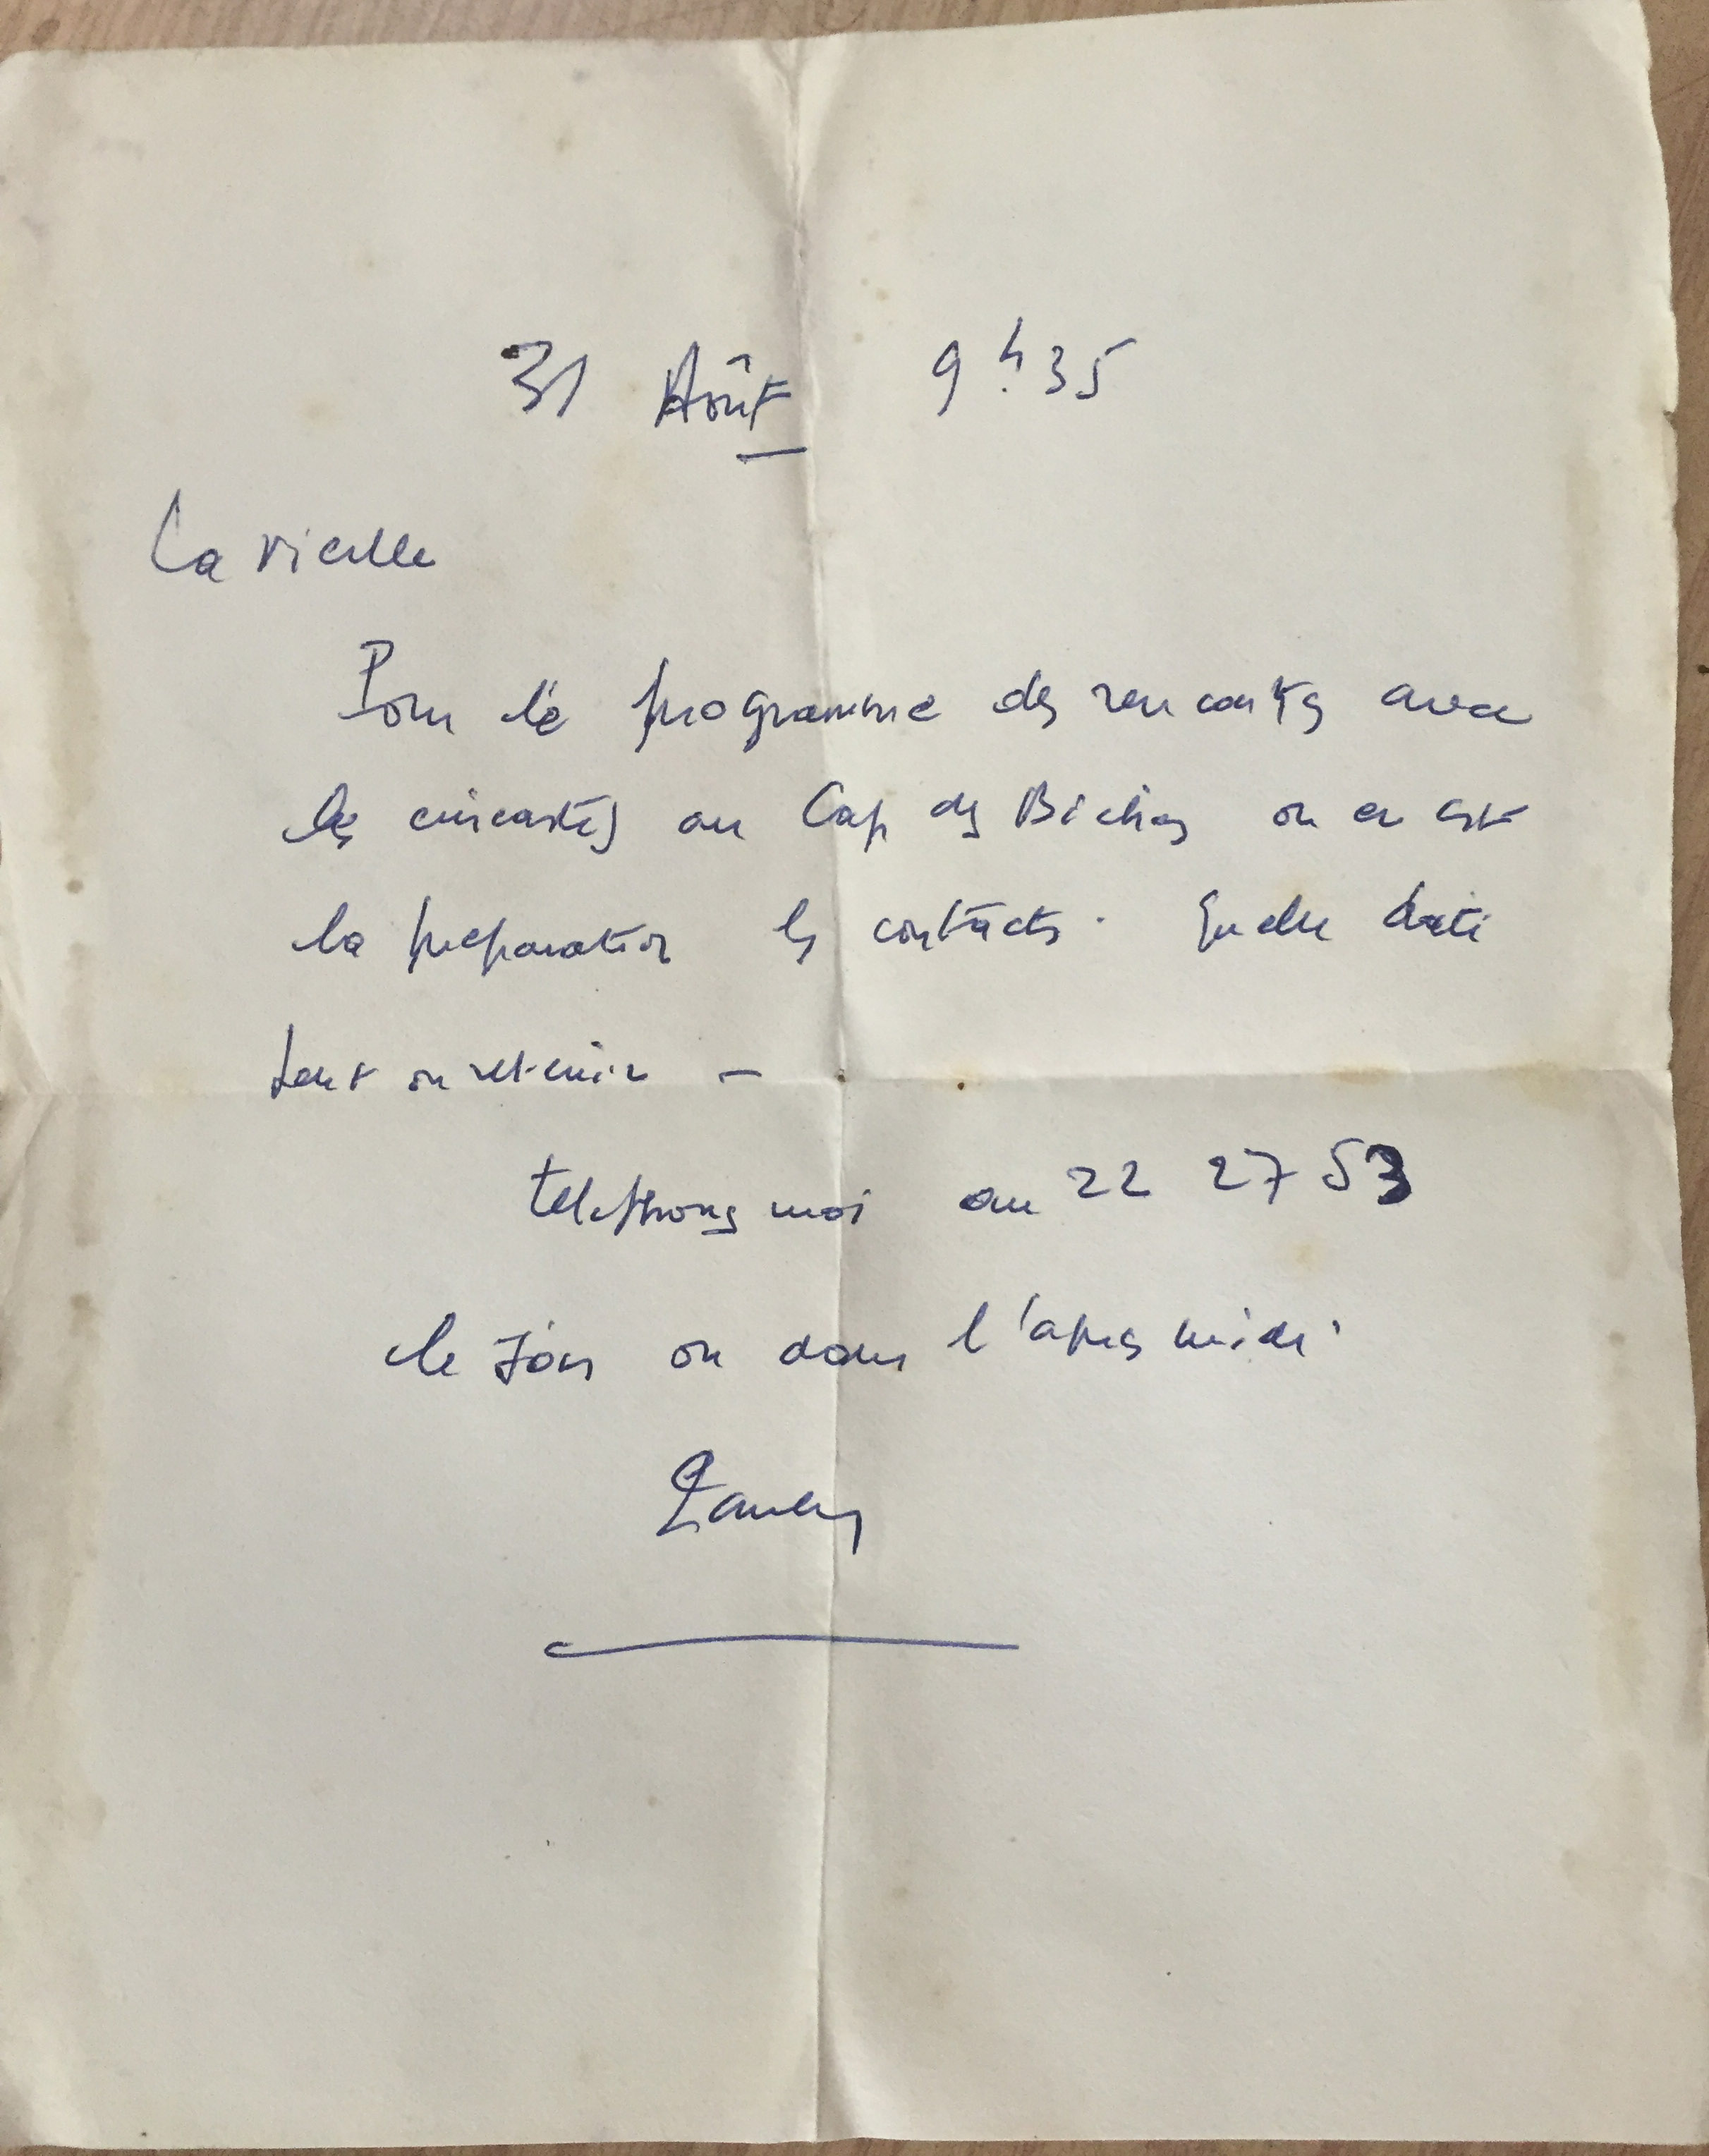 31 Août 9h35
La vieille
Pour le programme des rencontres avec
les cinéastes au Cap des Biches on en est
la preparation les contacts. Quelle date
faut on retenir —
telephones moi au 22 27 53
le soir ou dans l'apres midi.